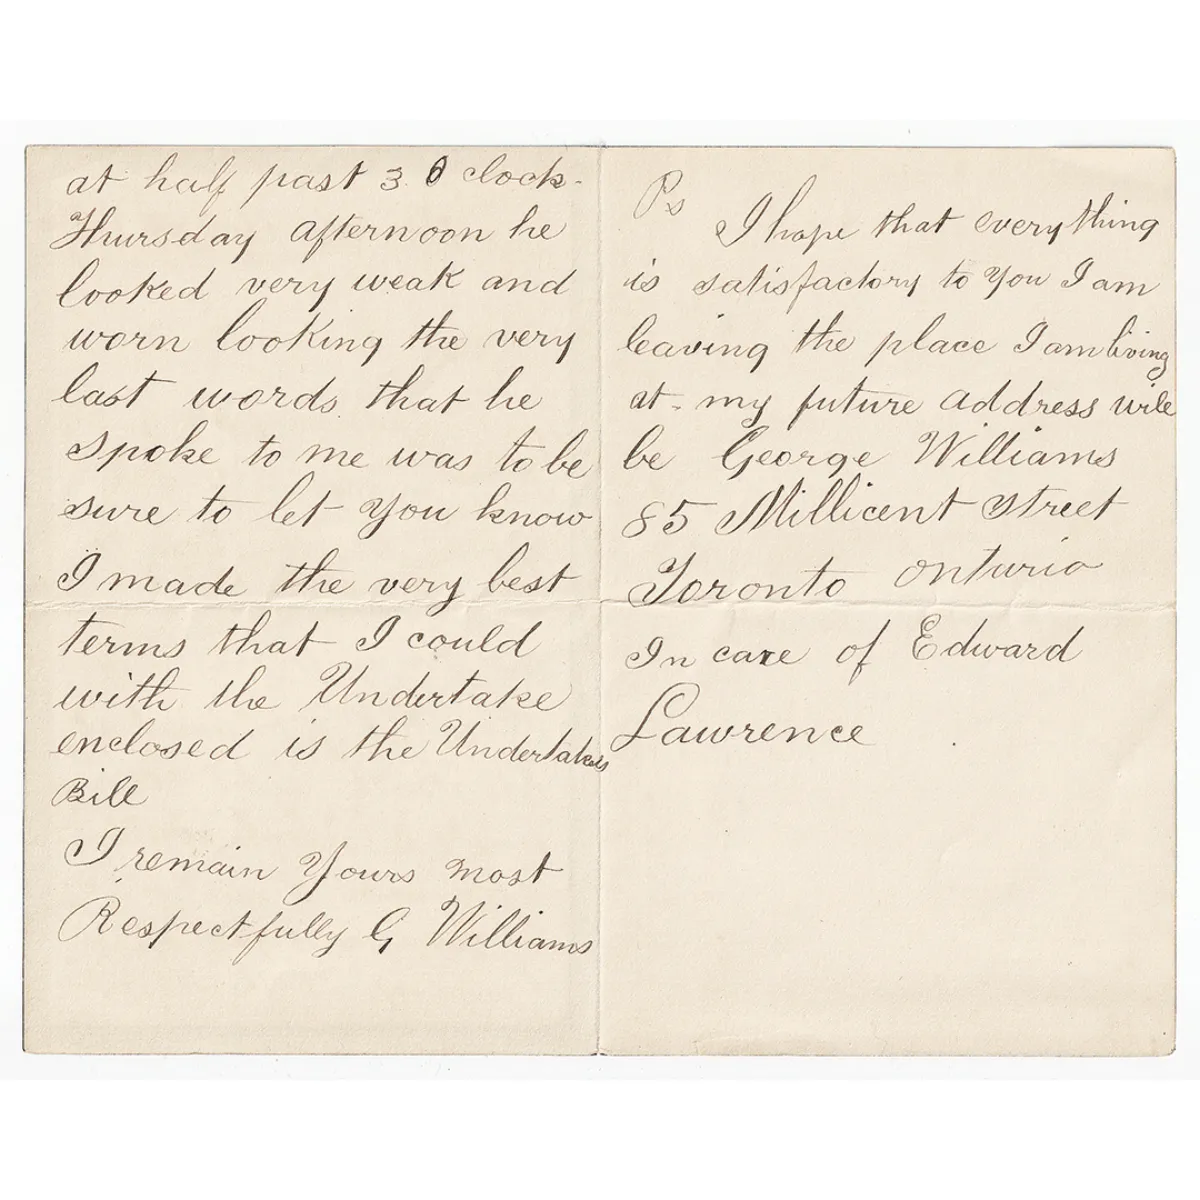 at half past 3 O clock-
Thursday afternoon he
looked very weak and
worn looking the very
last words that he
spoke to me was to be
sure to let you know
I made the very best
terms that I could
with the Undertake
enclosed is the Undertakers
Bill
I remain Yours most
Respectfully G Williams
Ps
I hope that everything
is satisfactory to you I am
leaving the place I am living
at - my future address will
be George Williams
85 Millicent Street
Toronto Onturio
In care of Edward
Lawrence